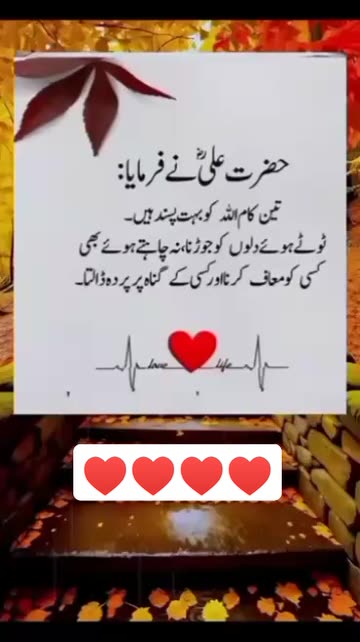 حضرت علیؓ نے فرمایا:
تین کام اللہ کو بہت پسند ہیں۔
ٹوٹے ہوئے دلوں کو جوڑنا، نہ چاہتے ہوئے بھی
کسی کو معاف کرنا اور کسی کے گناہ پر پردہ ڈالنا۔
love life